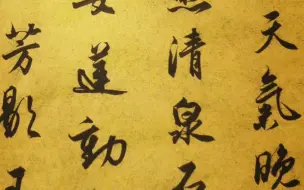 天氣晚
清泉
蓮動
芳歇